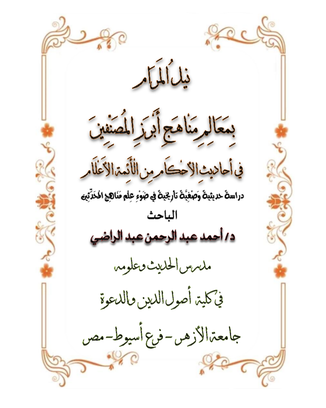 نيل المرام
بِمَعَالِمِ مَنَاهِجِ أَبْرَزِ المُصَنِّفِينَ
في أحاديث الأحكام من الأئمة الأعلام
دراسة حديثية وصفية تاريخية في ضوء علم مناهج المحدثين
الباحث
د/ أحمد عبد الرحمن عبد الراضي
مدرس الحديث وعلومه
في كلية أصول الدين والدعوة
جامعة الأزهر - فرع أسيوط - مصر